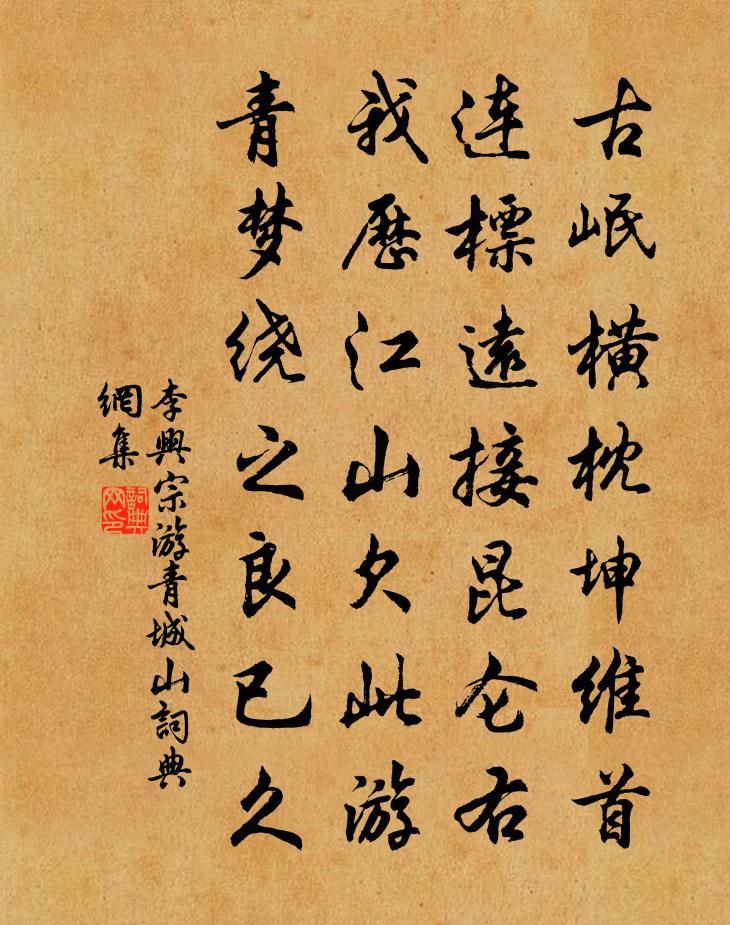 古岷横枕坤维首
连標遠接昆仑右
我歷江山欠此游
青梦绕之良已久
李興宗游青城山詞典
網集
詞典
网印